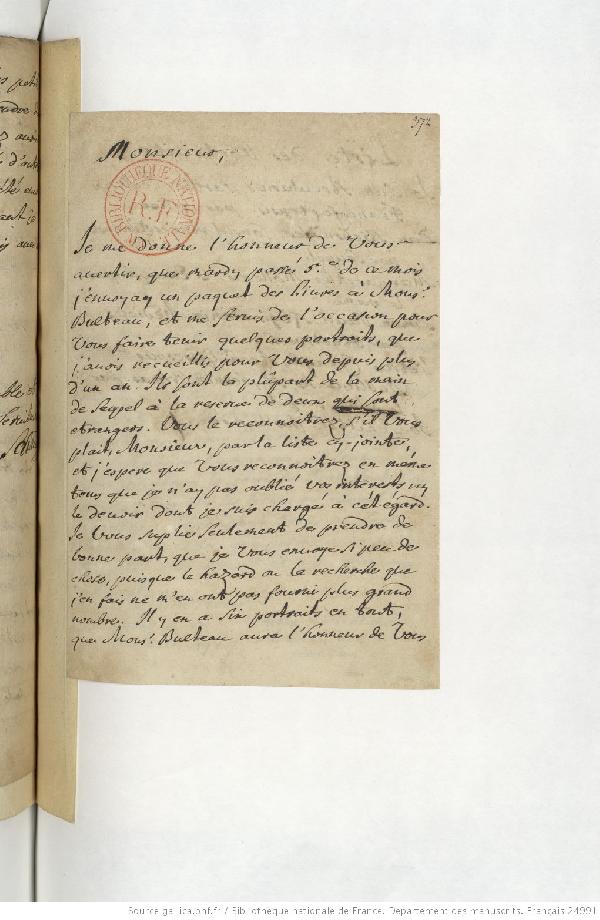 372
Monsieur,
BIBLIOTHEQUE NATIONALE
R.F.
Je me donne l'honneur de Vous
auertir, que mardy passé 5.e de ce mois
j'enuoyay un paquet des liures à Mons.r
Bulteau, et me seruis de l'occasion pour
Vous faire tenir quelques portraits, que
j'auois recueillis pour Vous depuis plus
d'un an. Ils sont la plûpart de la main
de à la reserue de deux qui sont
etrangers. Vous le reconnoitrez, s'il Vous
plait, Monsieur, par la liste cy-jointe,
et j'espere que Vous reconnoitrez en même
tems que je n'ay pas oublié vos interests ny
le deuoir dont je suis chargé à cét égard.
Je Vous suplie seulement de prendre de
bonne part, que je Vous enuoye si peu de
chose, puisque le hazard ou la recherche que
j'en fais ne m'en ont pas fourni plus grand
nombre. Il y en a six portraits en tout,
que Mons.r Bulteau aura l'honneur de Vous
Source gallica.bnf.fr / Bibliothèque nationale de France. Département des manuscrits. Français 24991